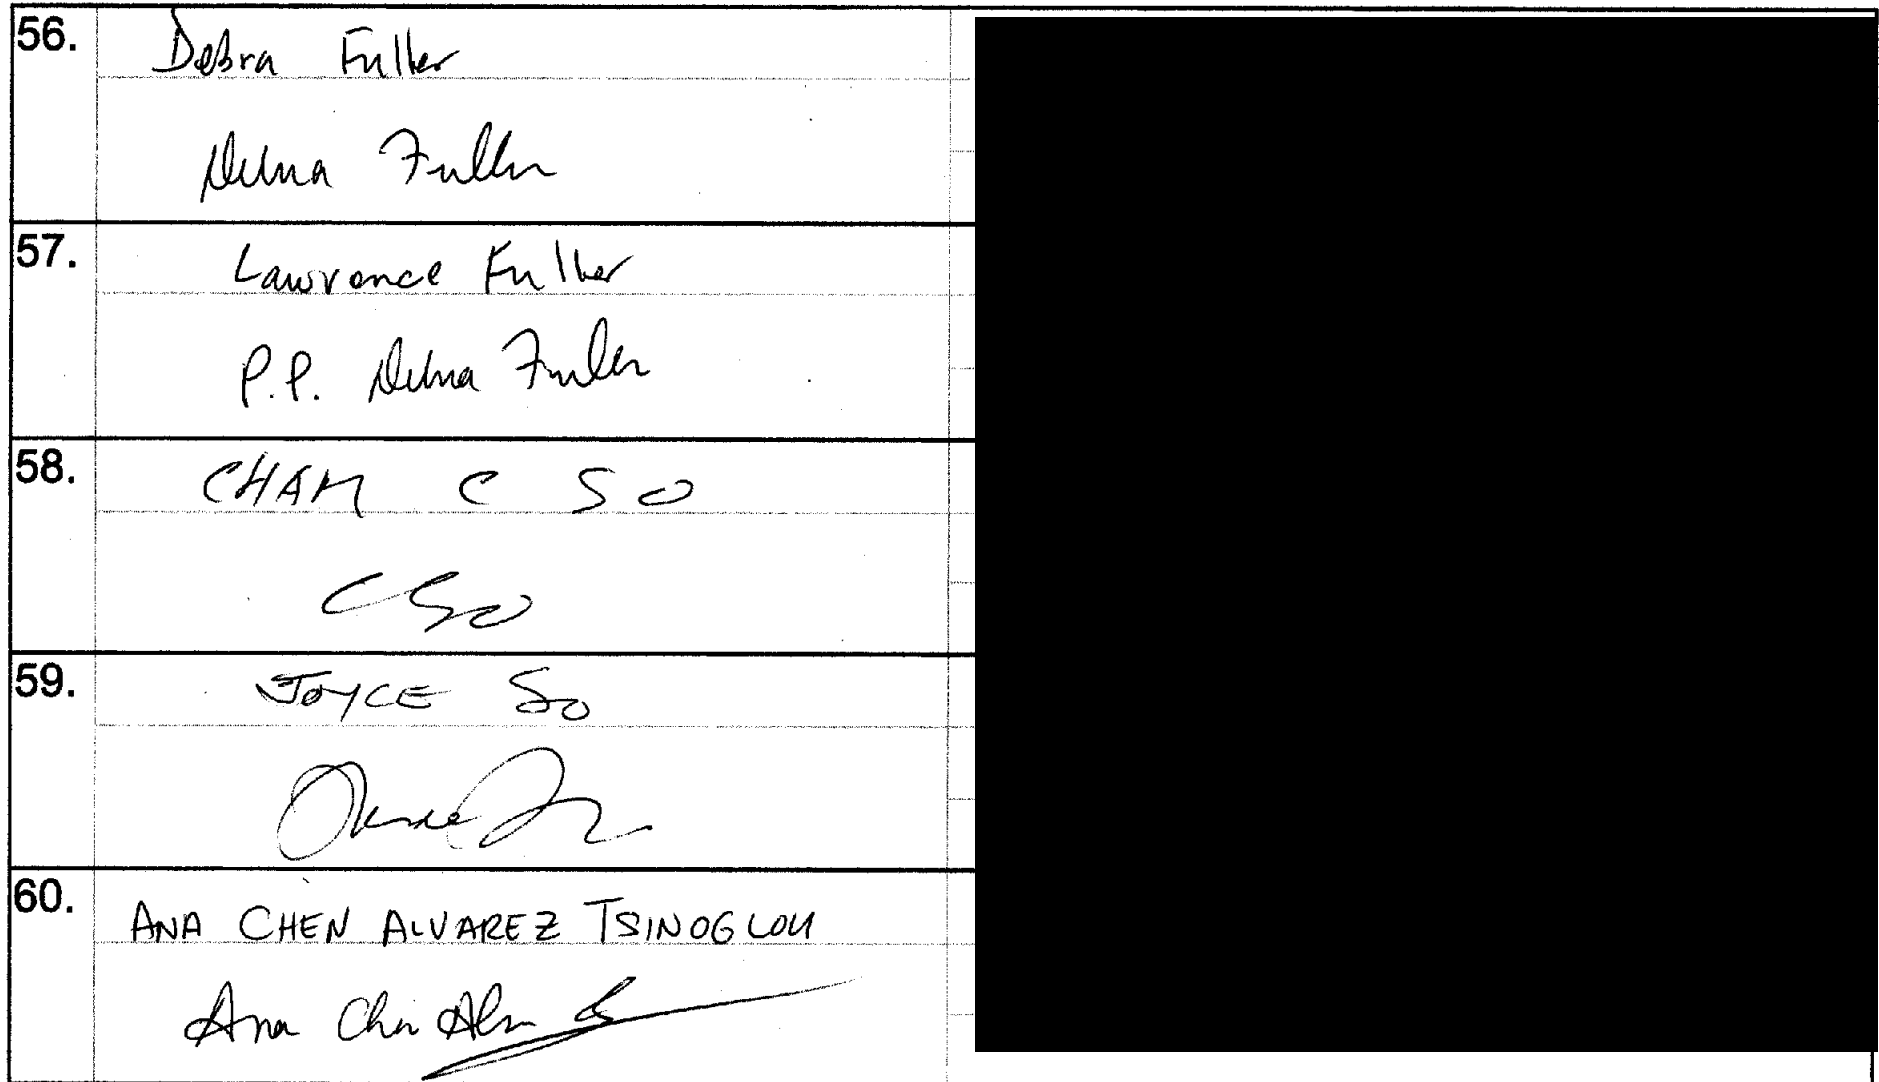 56.
Debra Fuller
Debra Fuller
57.
Lawrence Fuller
P.P. Debra Fuller
58.
CHAM C SO
C So
59.
JOYCE So
60.
ANA CHEN ALVAREZ TSINOGLOU
Ana Chen Alv